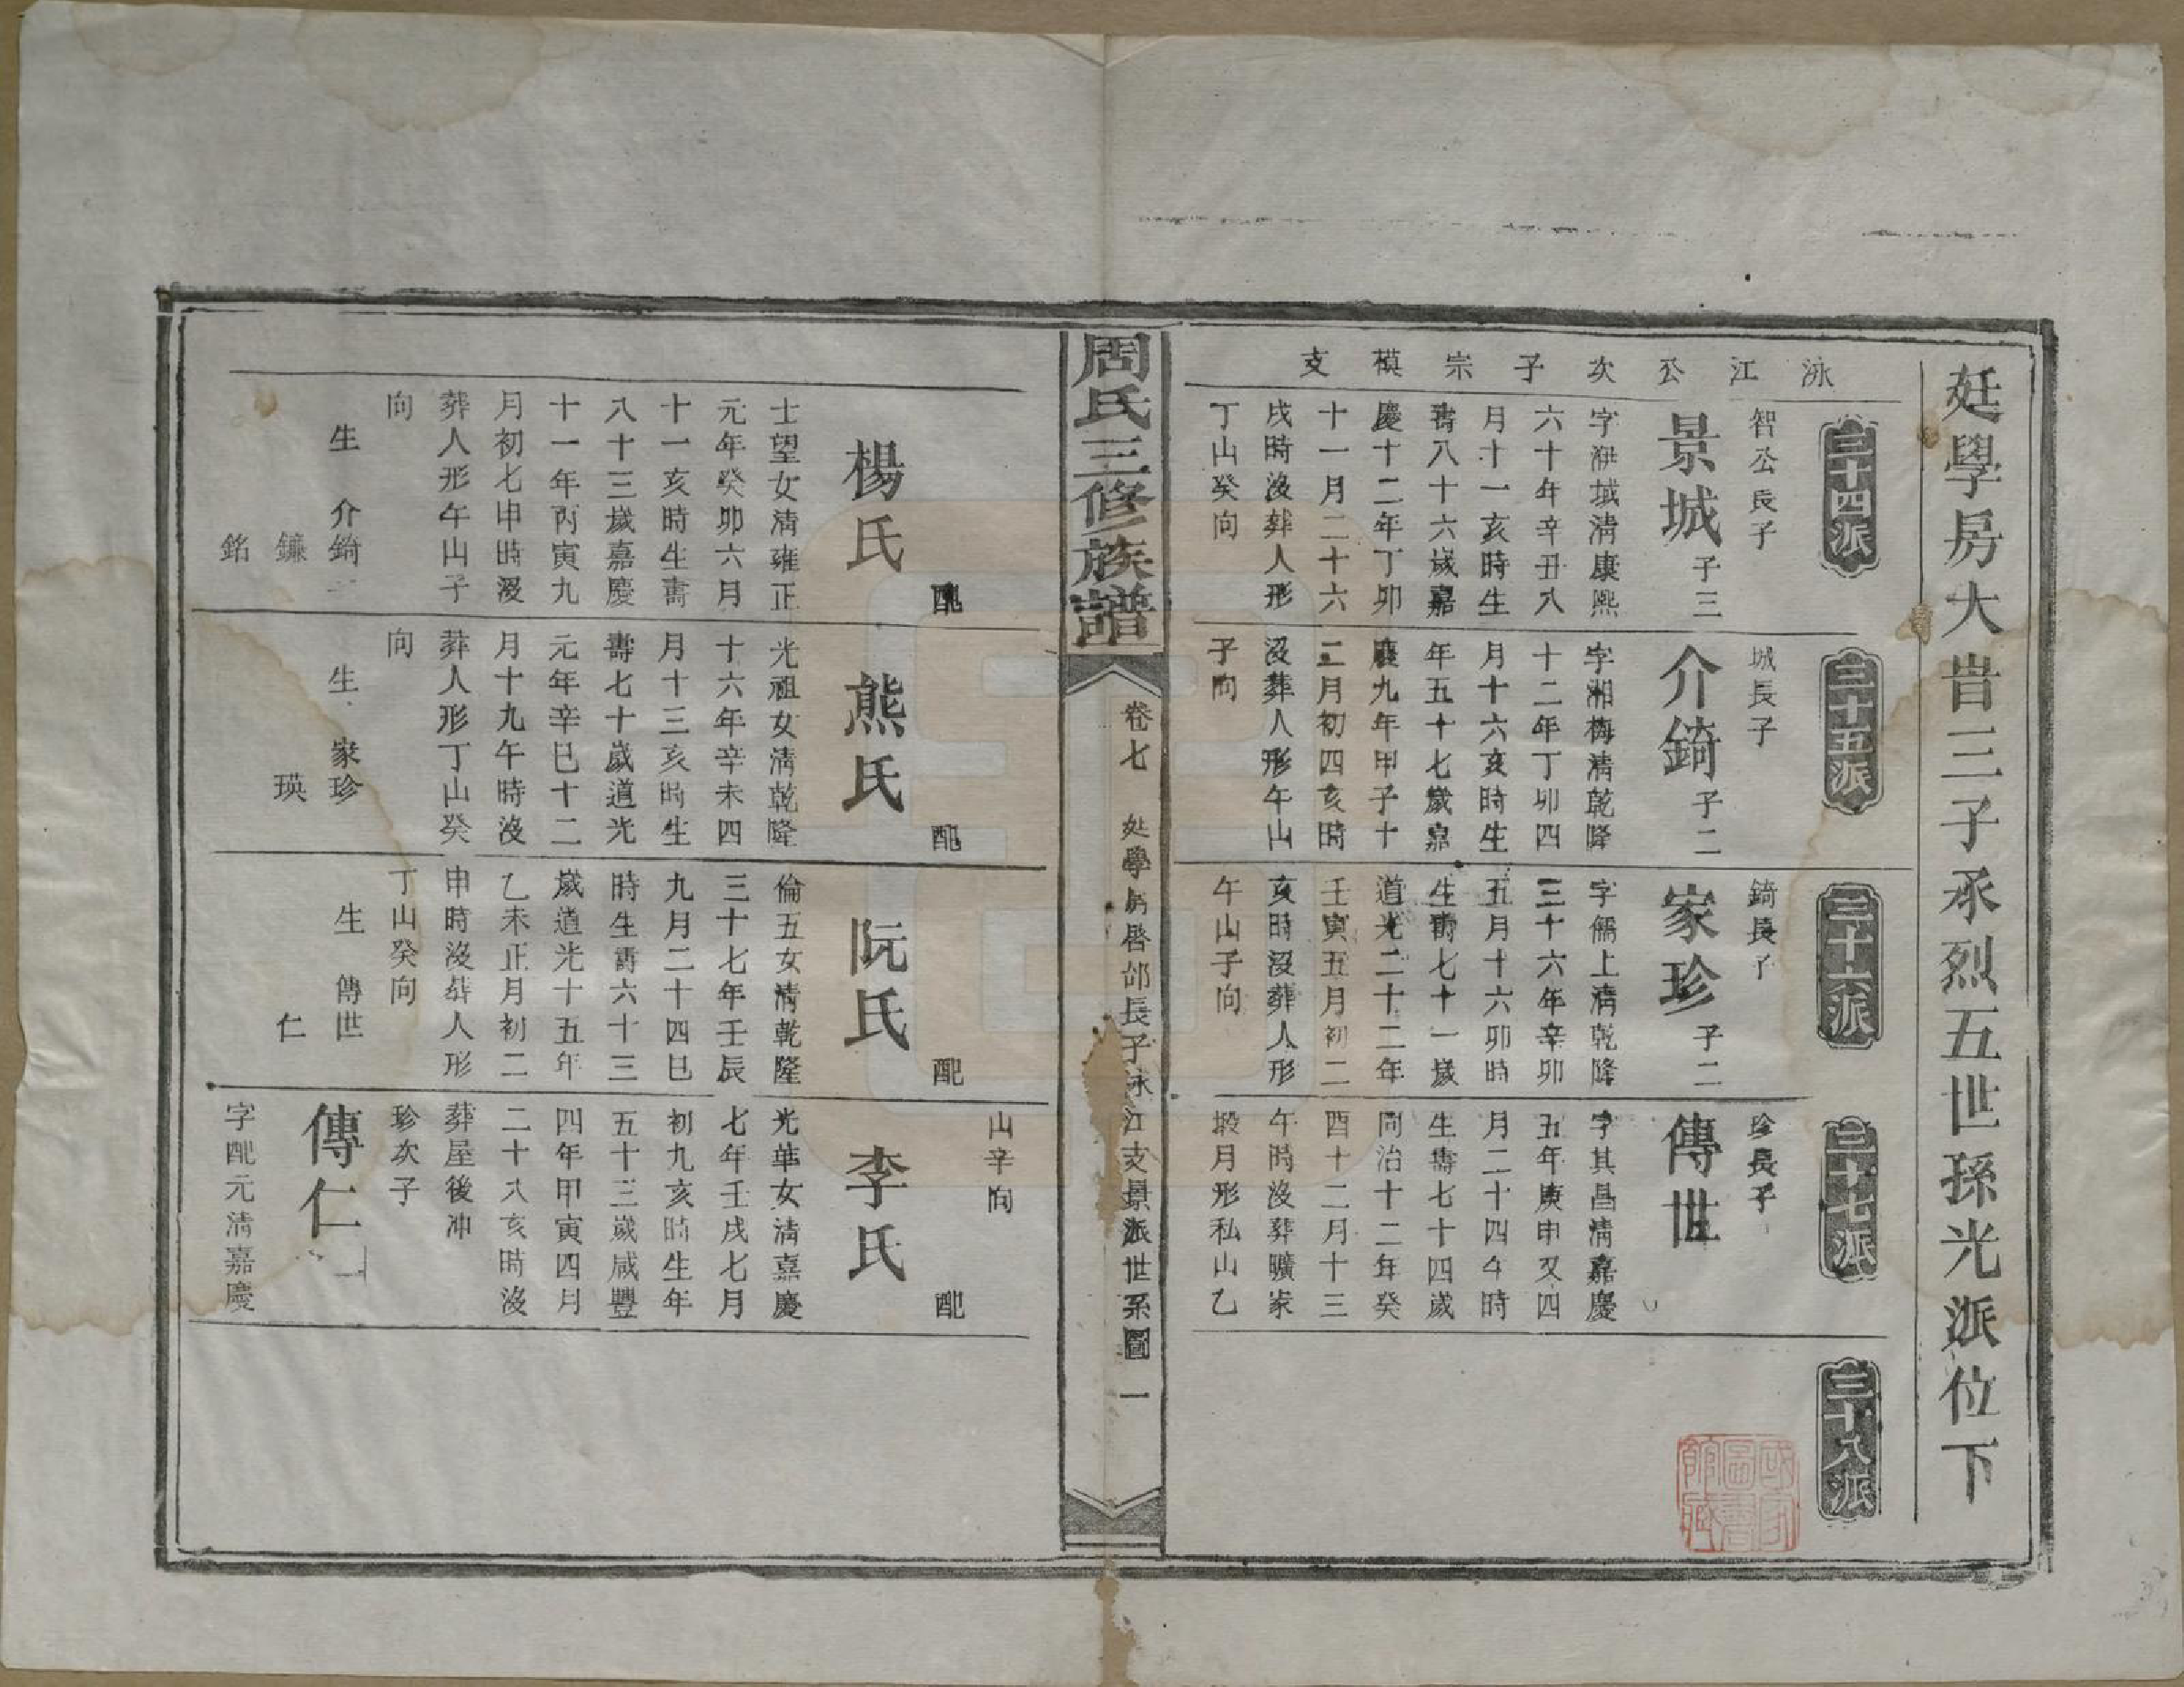 廷學房大昔三子承烈五世孫光派位下
泳江公次子宗模支
三十四派
智公長子
景城 子三
字湘城清康熙
六十年辛丑八
月十一亥時生
壽八十六歲嘉
慶十二年丁卯
十一月二十六
戌時沒葬人形
丁山癸向
三十五派
城長子
介錡 子二
字湘梅清乾隆
十二年丁卯四
月十六亥時生
年五十七歲嘉
慶九年甲子十
二月初四亥時
沒葬人形午山
子向
三十六派
錡長子
家珍 子二
字儒上清乾隆
三十六年辛卯
五月十六卯時
生壽七十一歲
道光二十二年
壬寅五月初二
亥時沒葬人形
午山子向
三十七派
珍長子
傳世
字其昌清嘉慶
五年庚申又四
月二十四午時
生壽七十四歲
同治十二年癸
酉十二月十三
午時沒葬曠家
塅月形私山乙
三十八派
國家圖書館藏
周氏三修族譜
卷七 廷學房啓邰長子泳江支景派世系圖 一
配
楊氏
士望女清雍正
元年癸卯六月
十一亥時生壽
八十三歲嘉慶
十一年丙寅九
月初七申時沒
葬人形午山子
向
生 介錡
鐮
銘
配
熊氏
光祖女清乾隆
十六年辛未四
月十三亥時生
壽七十歲道光
元年辛巳十二
月十九午時沒
葬人形丁山癸
向
生 家珍
瑛
配
阮氏
倫五女清乾隆
三十七年壬辰
九月二十四巳
時生壽六十三
歲道光十五年
乙未正月初二
申時沒葬人形
丁山癸向
生 傳世
仁
山辛向
配
李氏
光華女清嘉慶
七年壬戌七月
初九亥時生年
五十三歲咸豐
四年甲寅四月
二十八亥時沒
葬屋後冲
珍次子
傳仁
字配元清嘉慶